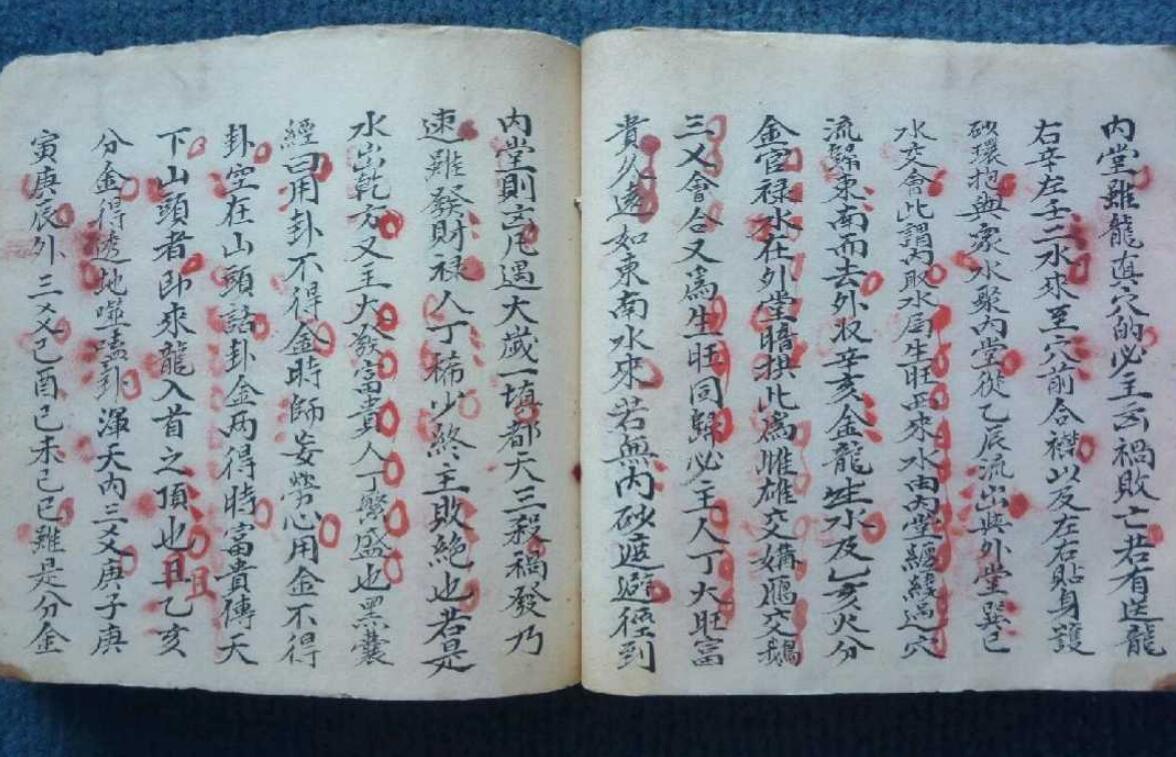 内堂雖龍真穴的必主立禍敗亡若有送龍
右辛左壬二水來至穴前合襟以及左右貼身護
砂環抱與衆水聚内堂從乙辰流出與外堂巽巳
水交會此謂内取水局生旺西來水由内堂纏繞過穴
流歸東南而去外收辛亥金龍生水及乙亥火分
金官禄水在外堂暗拱此為雌雄交媾鴈交鵝
三叉會合又為生旺同歸必主人丁大旺富
貴久遠如東南水來若無内砂遮避徑到
内堂則立凡遇大歲一填都天三殺禍發乃
速雖發財禄人丁稀少終主敗絶也若是
水出乾方又主大發富貴人丁繁盛也黑囊
經曰用卦不得金時師妄勞心用金不得
卦空在山頭話卦金两得時富貴傳天
下山頭者即來龍入首之頂也且乙亥
分金得透地噬嗑卦渾天内三爻庚子庚
寅庚辰外三爻己酉己未己巳雖是分金
且